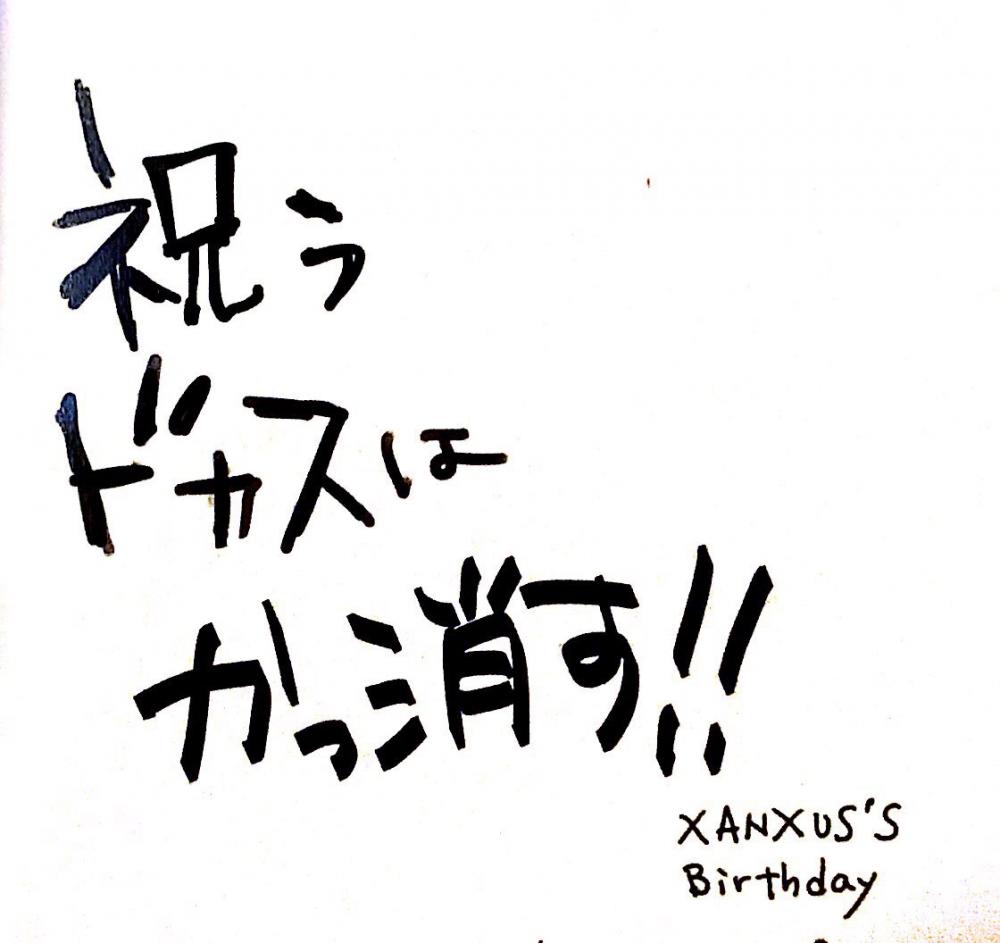 祝う
ドカスは
かっ消す!!
XANXUS'S
Birthday